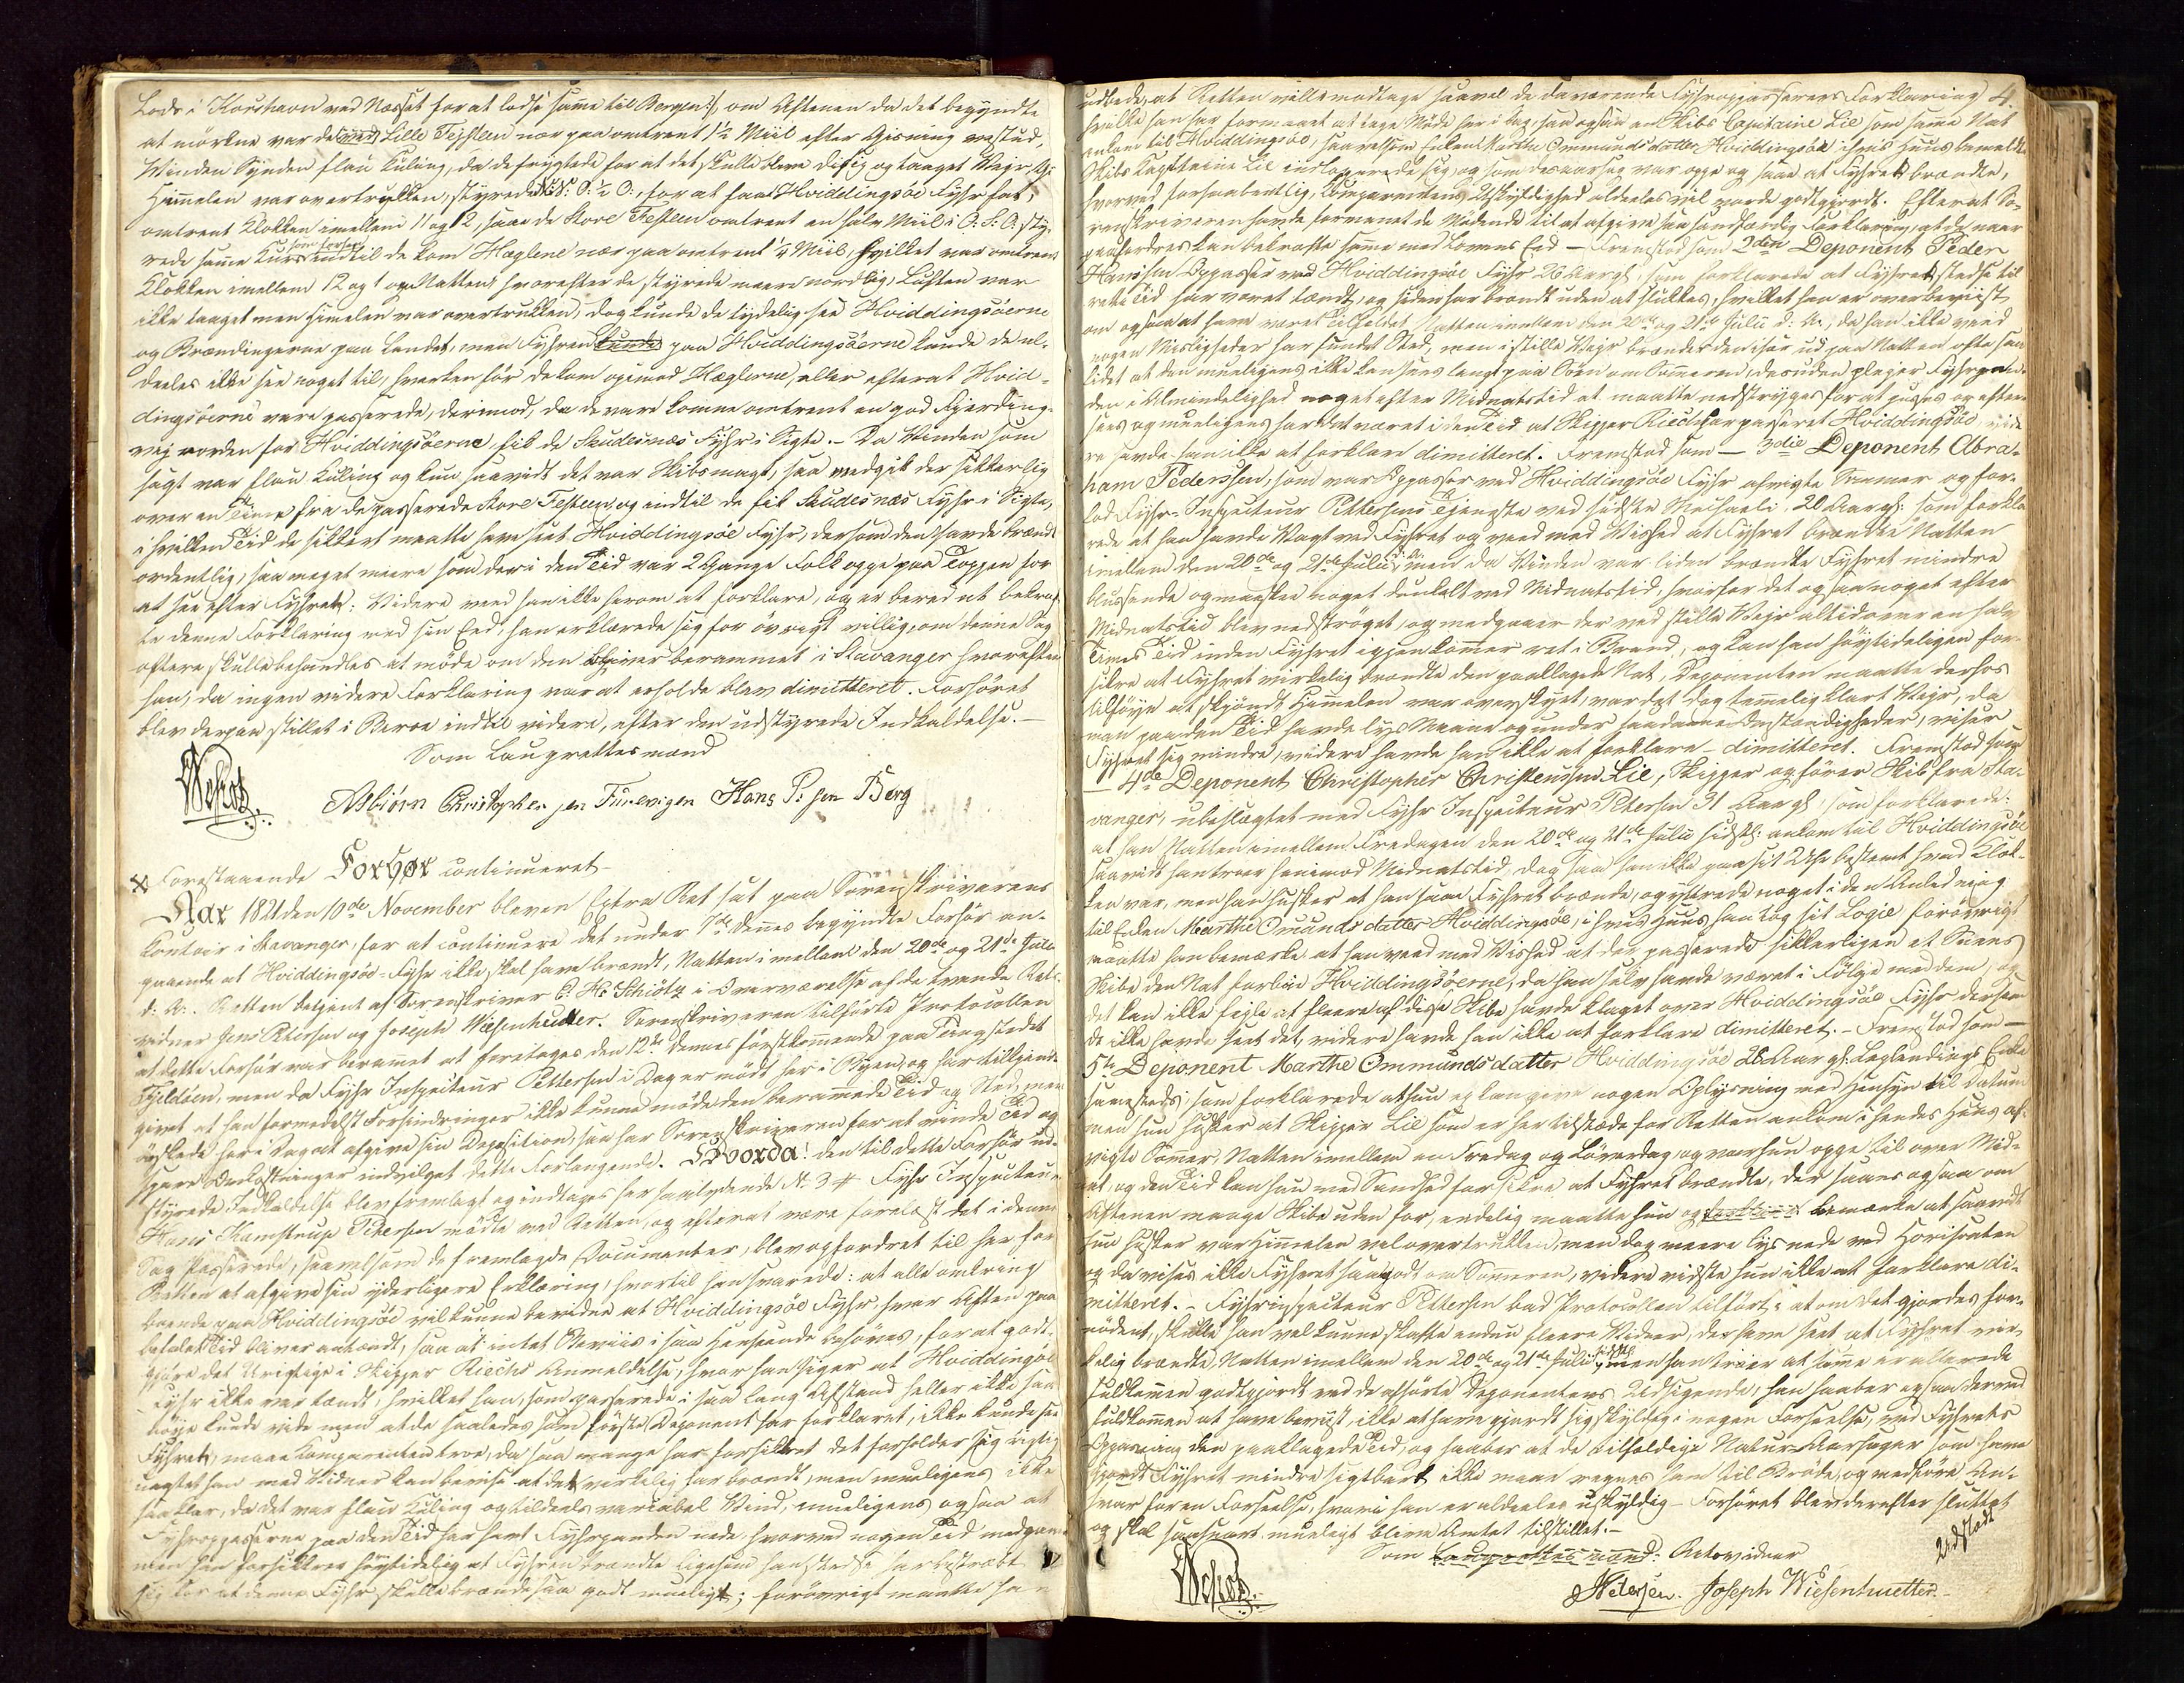 Lods i Korshavn ved Næsset for at lodse samme til Bergen; om Aftenen da det begyndte
at mørkne var de Lille Fejsteen nær paa omtrent 1½ Miil efter Gisning vestud,
Winden Synden flau Kuling, da de frygtede for at det skulle blive disig og taaget Wejr,
Himmelen var overtrukken, styrede N: O: ½ O:, for at faae Hviddingsöe Fyhr fat,
omtrent Klokken imellem 11 og 12, saae de Store Festeen omtrent en halv Miil i O: S: O: sty-
rede samme Kurs indtil de kom Hæglene nær paa omtrent ¼ Miil, hvilket var omtrent
Klokken imellem 12 og 1 om Natten, hvorefter de styrede meere nordlig, Luften var
ikke taaget men Himelen var overtrukken, dog kunde de tydelig see Hviddingsöerne
og Brændingerne paa Landet, men Fyhren paa Hviddingsöerne kunde de al-
deeles ikke see noget til, hverken för de kom opimod Hæglerne, eller efterat Hvid-
dingsöerne vare passerede, derimod, da de vare komne omtrent en god Fjerding-
vej norden for Hviddingsöerne, fik de Skudesnæs Fyhr i Sigte. - Da Winden som
sagt var flau Kuling og kun saavidt det var Skibsmagt, saa medgik der sikkerlig
over en Time fra de passerede Store Festeen, og indtil de fik Skudesnæs Fyhr i Sigte,
i hvilken Tid de sikkert maatte have seet Hviddingsöe Fyhr, dersom den havde brændt
ordentlig, saa meget meere som der i den Tid var 2 Gange Folk oppe paa Toppen for
at see efter Fyhret: Videre veed han ikke herom at forklare, og er bered at bekræf-
te denne Forklaring med sin Eed, han erklærede sig for øvrigt villig, om denne Sag
oftere skulle behandles at møde om den bliver berammet i Stavanger hvorefter
han, da ingen videre Forklaring var at erholde blev dimitteret. Forhøret
blev derpaa stillet i Beroe indtil videre, efter den udstyrede Indkaldelse. -
Som Laugrettesmænd
Asbiörn Christopher sen Furenigen Hans P: sen Berg
Forestaaende Forhør continueret -
Aar 1821 den 10de November blev en Extra Ret sat paa Sorenskriverens
Kontoir i Stavanger, for at continuere det under 7de dennes begyndte Forhör an-
gaaende at Hviddingsöe-Fyhr ikke skal have brændt, Natten imellem den 20de og 21de Julii
d: A: Retten betjent af Sorenskriver C. H. Schiøtz i Overværelse af de tvende Rets-
vidner Jens Petersen og Joseph Wiesenhutter. Sorenskriveren tilförte Protocollen
at dette Forhör var berammet at foretages den 12te dennes förstkommende paa Tingstedet
Fjeldöen, men da Fyhr Inspecteur Pettersen i Dag er mödt her i Byen, og har tilkjende-
givet at han formedelst Forhindringer ikke kunne møde den berammede Tid og Sted, men
ønskede her i Dag at afgive sin Deposition, saa har Sorenskriveren for at vinde Tid og
spare Omkostninger indvilget dette Forlangende. Hvorda! den til dette Forhör ud-
styrede Indkaldelse blev fremlagt og indtages her saalydende No 3 # Fyhr Inspecteur
Hans Kamstrup Petersen mödte ved Retten, og efterat være forelæst det i denne
Sag Passerede, saavelsom de fremlagde Documenter, blev opfordret til her for
Retten at afgive sin yderligere Erklæring, hvortil han svarede: at alle omkring
boende paa Hviddingsöe vil kunne bevidne at Hviddingsöe Fyhr, hver Aften paa
befalet Tid bliver antændt, saa at intet Beviis i saa Henseende behøves, for at godt-
gjøre det Urigtige i Skipper Riechs Anmeldelse, hvor han siger at Hviddingsöe
Fyhr ikke var tændt, hvilket han, som passerede i saa lang Afstand heller ikke saa
nöye kunde vide men at de saaledes som förste Deponent har forklaret, ikke kunde see
Fyhret, maae Comparenten troe, da saa mange har forsikkret det forholder sig rigtig
uagtet han med Vidner kan bevise at det virkelig har brændt, men mueligens ikke
saa klar, da det var flau Kuling og tildeels variabel Wind, mueligens ogsaa at
Fyhropasserne paa den Tid har havt Fyhrpanden nede, hvorved nogen Tid medgaaer
men han forsikkrer høytidelig at Fyhren brændte ligesom han stedse har bestræbt
sig for at denne Fyhr skulle brænde saa godt mueligt; forövrigt maatte han
4.
udbede, at Retten ville modtage saavel de daværende Fyhropasseres Forklaring
hvilke han har formanet at tage Møde her i Dag, saa ogsaa en Skibs Capitaine Lie som samme Nat
ankom til Hviddingsöe, saavelsom Enken Marthe Ommundsdatter Hviddingsöe i hvis Huus bemeldte
Skibs Capitaine Lie indlogerede sig, og som desaarsag var oppe og saae at Fyhret brændte,
hvorved forhaabentlig, Comparentens Uskyldighed aldeeles vil vorde godtgjordt. Efterat So-
renskriveren havde formanet de Mødende til at afgive saa sandfærdig Forklaring, at de naar
paafordres kan bekræfte samme med Lovens Eed - Fremstod som 2den Deponent Peder
Hansen Oppasser ved Hviddingsöe Fyhr 26 Aar gl., som forklarede at Fyhret stedse til
rette Tid har været tændt, og siden har brændt uden at slukkes, hvilket han er overbeviist
om ogsaa at have været Tilfældet Natten imellem den 20de og 21de Julii d: A:, da han ikke veed
nogen Misligheder har fundet Sted, men i stille Wejr brænder den især ud paa Natten ofte saa
lidet at den mueligens ikke kan sees langt paa Söen om Sommeren, desuden plejer Fyhrpan-
den i Almindelighed noget efter Midnatstid at maatte nedstryges for at pusses og efter-
sees og mueligens har det været i den Tid at Skipper Riech har passeret Hviddingsöe, vide-
re havde han ikke at forklare dimitteret. Fremstod som - 3die Deponent Abra-
ham Pederssen, som var Oppasser ved Hviddingsöe Fyhr afvigte Sommer og for-
lod Fyhr-Inspecteur Pettersens Tjeneste ved sidste Michaeli, 20 Aar gl: som forkla-
rede at han havde Vagt ved Fyhret og veed med Vished at Fyhret brændte Natten
imellem den 20de og 21de Julii d: A: men da Vinden var liden brændte Fyhret mindre
blussende og maaskee noget dunkelt ved Midnatstid, hvorfor det ogsaa noget efter
Midnatstid blev nedströget, og medgaaer der ved stille Wejr altid over en halv
Times Tid inden Fyhret igjen kommer ret i Brand, og kan han höytideligen for-
sikre at Fyhret virkelig brændte den paaklagede Nat, Deponenten maatte derhos
tilföye at skjöndt Himmelen var overskyet, var det dog temmelig klart Wejr, da
man paa den Tid havde lys Maane og under saadanne Omstændigheder, viser
Fyhret sig mindre, videre havde han ikke at forklare - dimitteret. Fremstod som
- 4de Deponent Christopher Christensen Lie, Skipper og fører Skib fra Sta-
vanger, ubeslægtet med Fyhr Inspecteur Petersen 31 Aar gl, som forklarede:
at han Natten imellem Fredagen den 20de og 21de Julii sidstl: ankom til Hviddingsöe
saavidt han troer henimod Midnatstid, dog saae han ikke paa sit Uhr bestemt hvad Klok-
ken var, men han husker at han saae Fyhret brænde, og yttrede noget i den Anledning
til Enken Marthe Omundsdatter Hviddingsöe, i hvis Huus han tog sit Logie, forövrigt
maatte han bemærke at han veed med Vished at der passerede sikkerligen et Snees
Skibe den Nat forbie Hviddingsöerne, da han selv havde været i Fölge med dem, og
det kan ikke fejle at fleere af disse Skibe havde klaget over Hviddingsöe Fyhr dersom
de ikke havde seet det, videre havde han ikke at forklare dimitteret. - Fremstod som -
5te Deponent Marthe Ommundsdatter Hviddingsöe 28 Aar gl: Leylendings Enke
sammesteds; som forklarede at hun ej kan give nogen Oplysning med Hensyn til Datum
men hun husker at Skipper Lie som er her tilstæde for Retten ankom i hendes Huus af-
vigte Sommer, Natten imellem en Fredag og Löverdag, og var hun oppe til over Mid-
nat, og den Tid kan hun med Sandhed forsikre at Fyhret brændte, der saaes ogsaa om
Aftenen mange Skibe uden for, endelig maatte hun og bemærke at saavidt
hun husker var Himmelen vel overtrukken, men dog meere lys nede ved Horisonten
og da vises ikke Fyhret saa godt om Sommeren, videre vidste hun ikke at forklare di-
mitteret. - Fyhrinspecteur Pettersen bad Protocollen tilfört: at om det gjordes for-
nødent, skulle han vel kunne skaffe endnu fleere Vidner, der have seet at Fyhret vir-
kelig brændte, Natten imellem den 20de og 21de Julii sidstl: men han troer at samme er allerede
fuldkommen godtgjordt ved de afhörte Deponenters Udsigende, han haaber ogsaa derved
fuldkommen at have beviist, ikke at have gjordt sig skyldig i nogen Forseelse, ved Fyhrets
Oppasning den paaklagede Tid, og haaber at de tilfældige Natur-Aarsager som have
gjordt Fyhret mindre sigtbart ikke maae regnes ham til Bröde, og medføre An-
svar for en Forseelse, hvori han er aldeeles uskyldig - Forhøret blev derefter sluttet
og skal saasnart mueligt blive Amtet tilstillet. -
Udstædt
Som Laugrettesmænd: Retsvidner
JPetersen. Joseph Wiesenhuetter